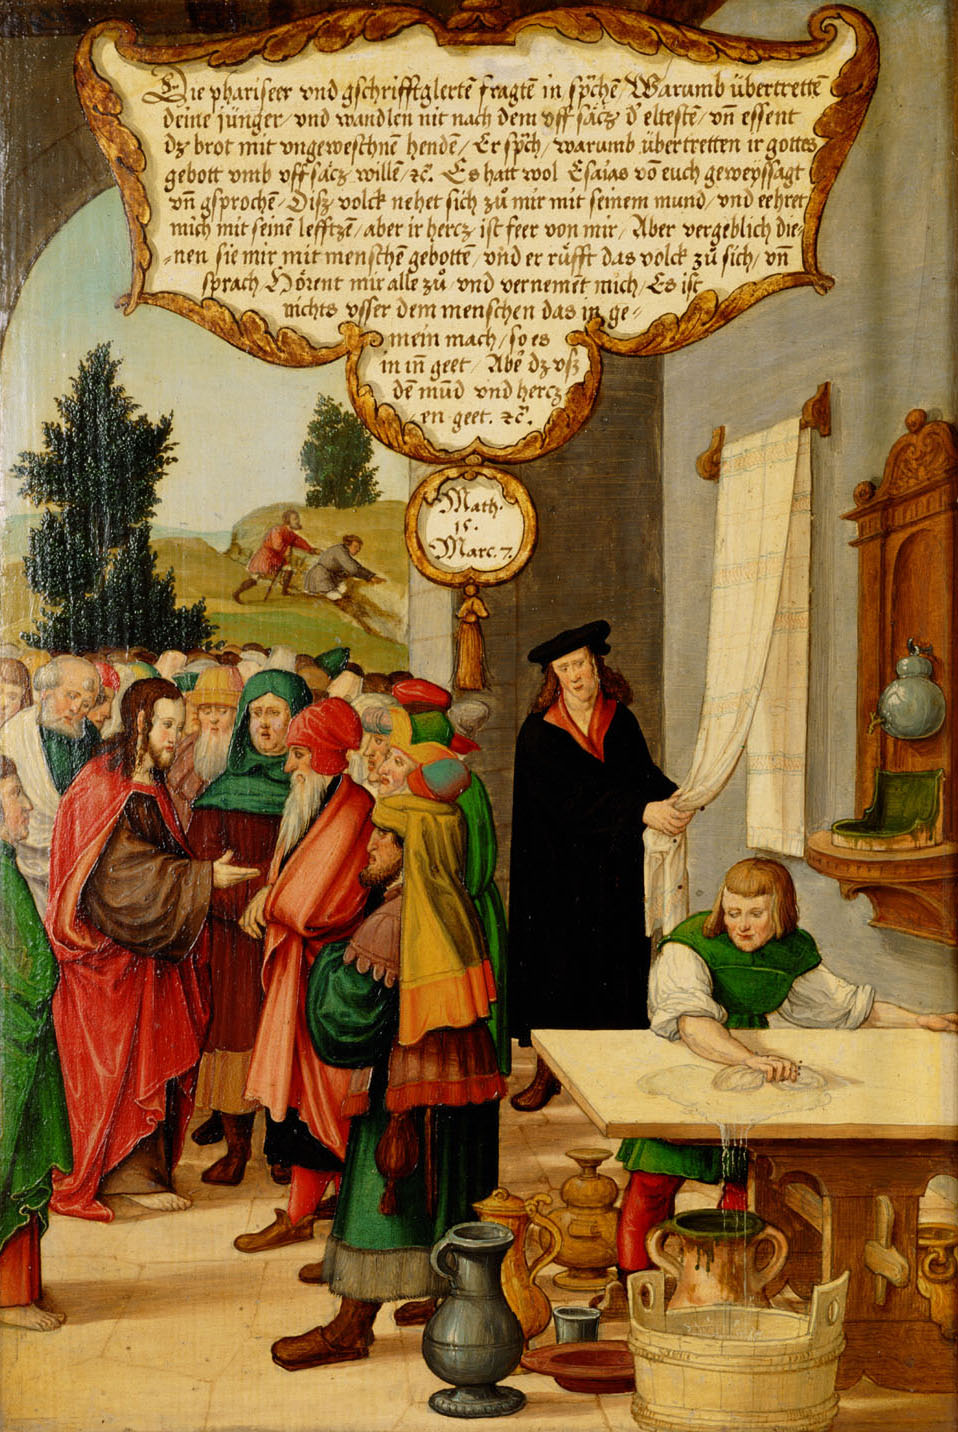 Die phariseer vnd gschrifftglertē fragtē in sp̄chē/ Warumb übertrettē
deine jünger/ vnd wandlen nit nach dem vff säcz d' eltestē/ vn̄ essent
dz brot mit vngeweschnē hendē/ Er sp̄ch/ warumb übertretten ir gottes
gebott vmb vff säcz willē/ ꝛc̄. Es hatt wol Esaias vō euch geweyssagt
vn̄ gsprochē/ Disz volck nehet sich zů mir mit seinem mund/ vnd eehret
mich mit seinē lefftzē/ aber ir hercz ist feer von mir/ Aber vergeblich die-
-nen sie mir mit menschē gebottē/ vnd er růfft das volck zů sich/ vn̄
sprach Hörent mir alle zů/ vnd vernemēt mich/ Es ist
nichts vsser dem menschen das in ge-
mein mach/ so es
in in̄ geet/ Abe' dz vsz
dē mūd vnd hercz-
en geet. ꝛc̄.
Math.
15.
Marc. 7.